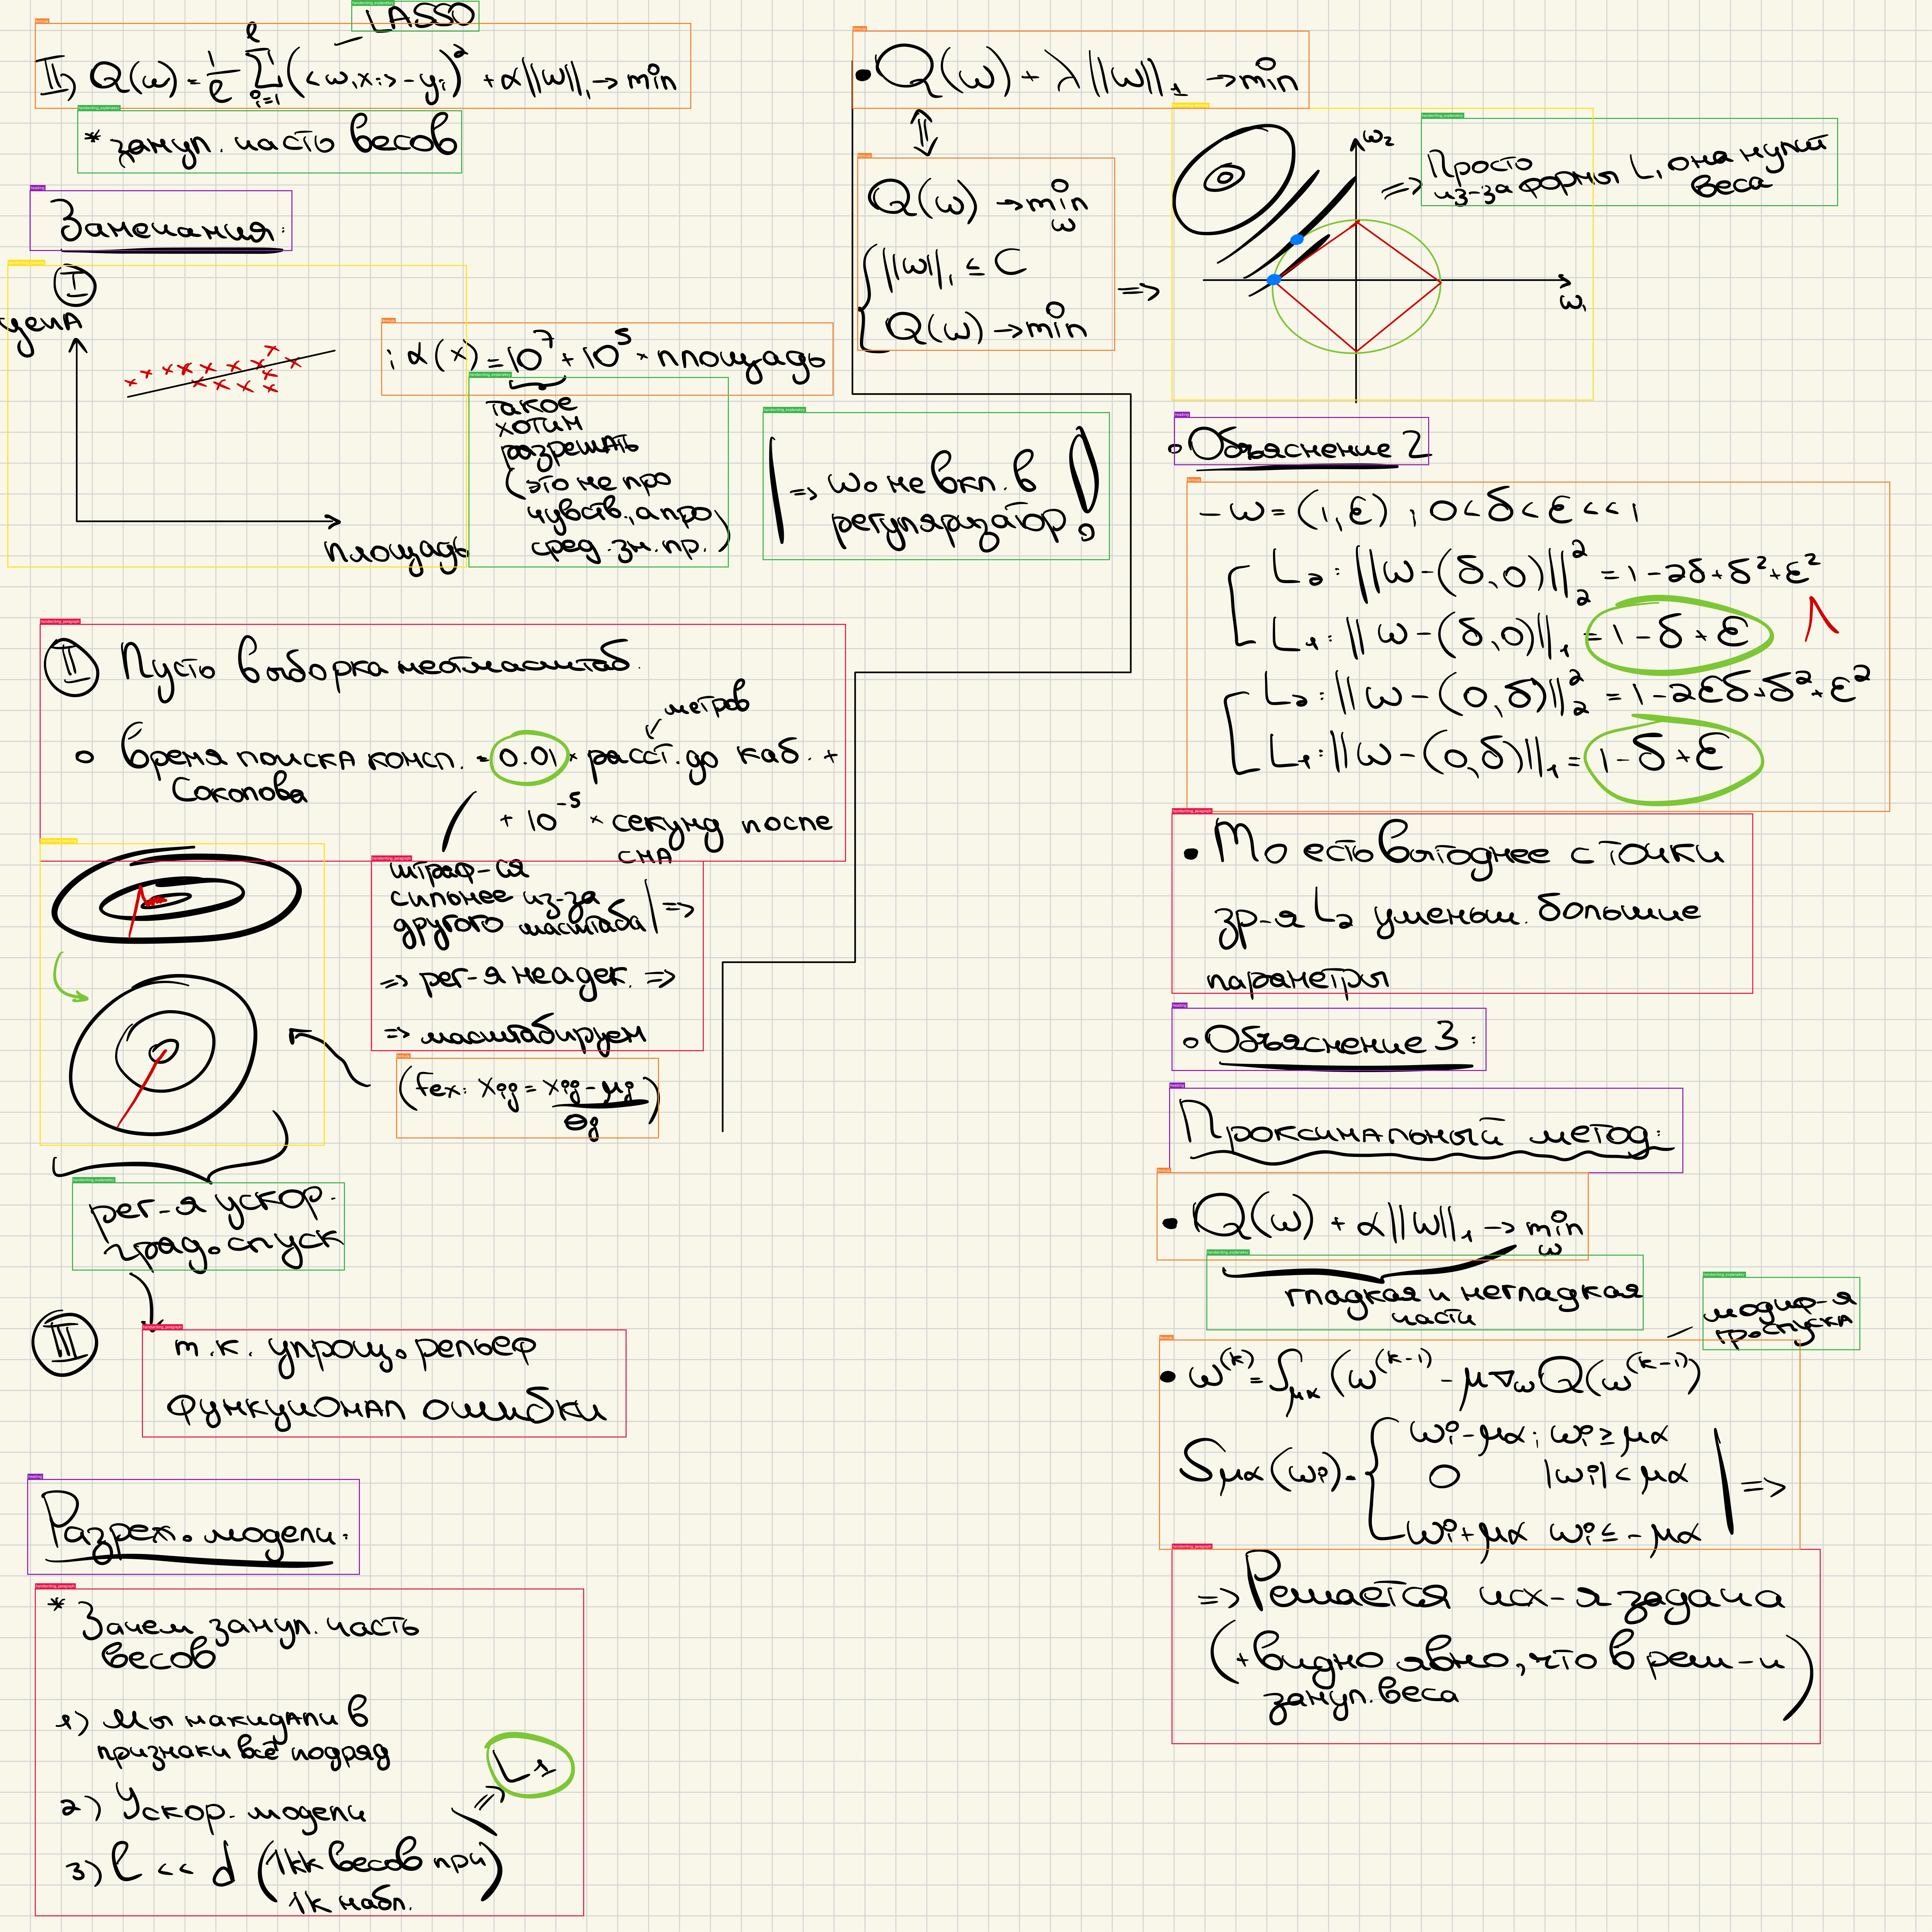 LASSO
II) Q(w) = 1/ℓ ∑_{i=1}^{ℓ} (<w, x_i> - y_i)² + α||w||₁ → min
* занул. часть весов
Замечания:
I
цена
площадь
; α(x) = 10⁷ + 10⁵ × площадь
такое
хотим
разрешать
(это не про
чувств., а про
сред. зн. пр.)
=> w₀ не вкл. в
регуляризатор !
II Пусть выборка неотмасштаб.
метров
○ время поиска консп. = 0.01 × расст. до каб. +
Соколова
+ 10⁻⁵ × секунд после
сна
штраф-ся
сильнее из-за
другого масштаба | =>
=> рег-я неадек. =>
=> масштабируем
(fex: x_ij = (x_ij - μ_j) / σ_j)
рег-я ускор.
град. спуск
III
т.к. упрощ. рельеф
функционал ошибки
Разреж. модели:
* Зачем занул. часть
весов
1) Мы накидали в
признаки всё подряд
2) Ускор. модели
3) ℓ << d (1кк весов при
1к набл.)
=> L₁
• Q(w) + λ||w||₁ → min
⇕
Q(w) → min_w
{ ||w||₁ ≤ C
Q(w) → min
=>
w₂
w₁
=> Просто
из-за формы L₁ она нулит
веса
○ Объяснение 2
- w = (1, ε) ; 0 < δ < ε << 1
L₂: ||w - (δ, 0)||₂² = 1 - 2δ + δ² + ε²
L₁: ||w - (δ, 0)||₁ = 1 - δ + ε
L₂: ||w - (0, δ)||₂² = 1 - 2εδ + δ² + ε²
L₁: ||w - (0, δ)||₁ = 1 - δ + ε
• То есть выгоднее с точки
зр-я L₂ уменьш. большие
параметры
○ Объяснение 3:
Проксимальный метод:
• Q(w) + α||w||₁ → min_w
гладкая и негладкая
части
модиф-я
гр. спуска
• w^(k) = S_μα (w^(k-1) - μ∇_w Q(w^(k-1))
S_μα(w_i) = { w_i - μα ; w_i ≥ μα
0 |w_i| < μα
w_i + μα w_i ≤ -μα | =>
=> Решается исх-я задача
(+ видно явно, что в реш-и
занул. веса)